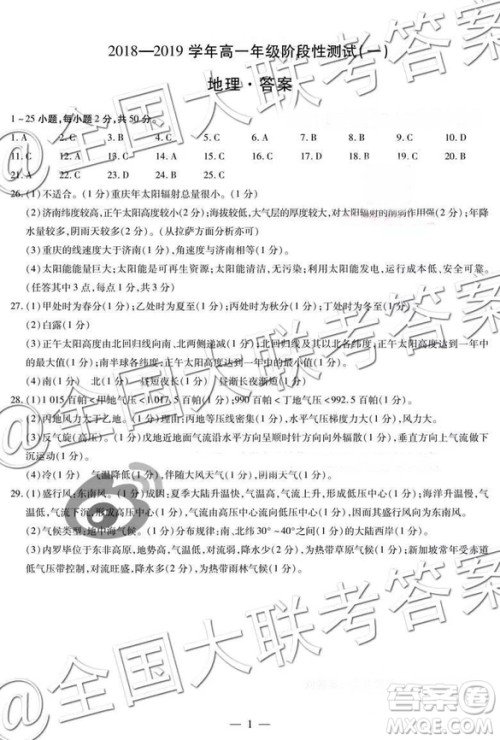 2018—2019学年高一年级阶段性测试(一)
地理·答案
1~25小题,每小题2分,共50分。
1. A 2. C 3. B 4. C 5. C 6. A 7. B 8. C 9. C 10. D
11. C 12. A 13. D 14. D 15. B 16. A 17. C 18. D 19. B 20. D
21. A 22. C 23. A 24. D 25. C
26. (1)不适合。(1分)重庆年太阳辐射总量很小。(1分)
(2)济南纬度较高,正午太阳高度较小(2分);海拔较低,大气层的厚度大(2分);对太阳辐射的削弱作用强(2分);年降
水量较大,阴雨天较多(2分)。(从拉萨方面分析亦可)
(3)重庆的线速度大于济南(1分),角速度与济南相等(1分)。
(4)太阳能能量巨大;太阳能是可再生资源;太阳能清洁,无污染;利用太阳能源,不占耕地,安全无害等。
(任答其中3点,每点1分,共3分)
27. (1)甲处时为春分(1分);乙处时为夏至(1分);丙处时为秋分(1分);丁处时为冬至(1分)。
(2)白露(1分)
(3)正午太阳高度由北回归线向南、北两侧递减(1分);北回归线及其以北各地正午太阳高度达到一年中的
最大值(1分);南半球各地正午太阳高度达到一年中的最小值(1分)。
(4)南(1分) 北(1分) 昼短夜长(1分) 昼渐长夜渐短(1分)
28. (1)1 015百帕<甲地气压<1 017.5百帕(2分);990百帕<丁地气压<992.5百帕(1分)
(2)丙地风力大于乙地。(1分)理由:丙地等压线密集,水平气压梯度力大,风力大。(2分)
(3)反气旋(高压)。(1分)戊地近地面气流沿水平方向由中心向外辐散(1分),中心气流在垂直方向上做下
沉运动。(1分)
(4)冷(1分) 气温降低(1分),伴随大风天气(1分),气压升高(1分)。
29. (1)盛行风:东南风。(1分)成因:夏季大陆升温快,气温高,气流上升,形成低压中心(1分);海洋升温慢,气
温低,气流下沉,形成高压中心(1分)。气流由高压中心流向低压中心(1分),形成东南风。
(2)气候类型:地中海气候。(1分)分布规律:南、北纬30°~40°之间(1分)的大陆西岸(1分)。
(3)内罗毕位于东非高原,地势高,气温较低,对流弱,降水少(2分),为热带草原气候(1分);新加坡常年受赤
道低气压带控制,对流旺盛,降水多(2分),为热带雨林气候(1分)。
— 1 —
@全国大联考答案
@全国大联考答案
@全国大联考答案
答案圈
MXQE.COM